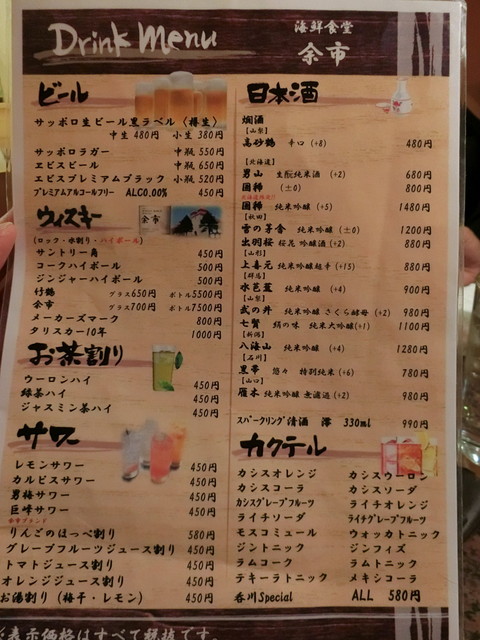 Drink Menu
海鮮食堂
余市
ビール
サッポロ生ビール黒ラベル〈樽生〉
中生 480円 小生 380円
サッポロラガー 中瓶 550円
ヱビスビール 中瓶 650円
ヱビスプレミアムブラック 小瓶 520円
プレミアムアルコールフリー ALC0.00% 450円
ウィスキー
余市
(ロック・水割り・ハイボール)
サントリー角 450円
コークハイボール 500円
ジンジャーハイボール 500円
竹鶴 グラス650円 ボトル5500円
余市 グラス700円 ボトル7500円
メーカーズマーク 800円
タリスカー10年 1000円
お茶割り
ウーロンハイ 450円
緑茶ハイ 450円
ジャスミン茶ハイ 450円
サワー
レモンサワー 450円
カルピスサワー 450円
男梅サワー 450円
巨峰サワー 450円
余市ブランド
りんごのほっぺ割り 580円
グレープフルーツジュース割り 450円
トマトジュース割り 450円
オレンジジュース割り 450円
お湯割り (梅干・レモン) 450円
日本酒
燗酒
【山梨】
高砂鶴 辛口 (+8) 480円
【北海道】
男山 生酛純米酒 (+2) 680円
国稀 (±0) 800円
北海道限定
国稀 純米吟醸 (+5) 1480円
【秋田】
雪の子舎 純米吟醸 (±0) 1200円
出羽桜 桜花 吟醸酒 (+2) 880円
【山形】
上喜元 純米吟醸超辛 (+15) 880円
【群馬】
水芭蕉 純米吟醸 (+4) 900円
【山梨】
武の井 純米吟醸 さくら酵母 (+2) 980円
七賢 絹の味 純米大吟醸(+1) 1100円
【新潟】
八海山 純米吟醸 (+4) 1280円
【石川】
黒帯 悠々 特別純米 (+6) 780円
【山口】
雁木 純米吟醸 無濾過 (+2) 980円
スパークリング清酒 澪 330ml 990円
カクテル
カシスオレンジ カシスウーロン
カシスコーラ カシスソーダ
カシスグレープフルーツ ライチオレンジ
ライチソーダ ライチグレープフルーツ
モスコミュール ウォッカトニック
ジントニック ジンフィズ
ラムコーク ラムトニック
テキーラトニック メキシコーラ
香川Special ALL 580円
※表示価格はすべて税抜です。